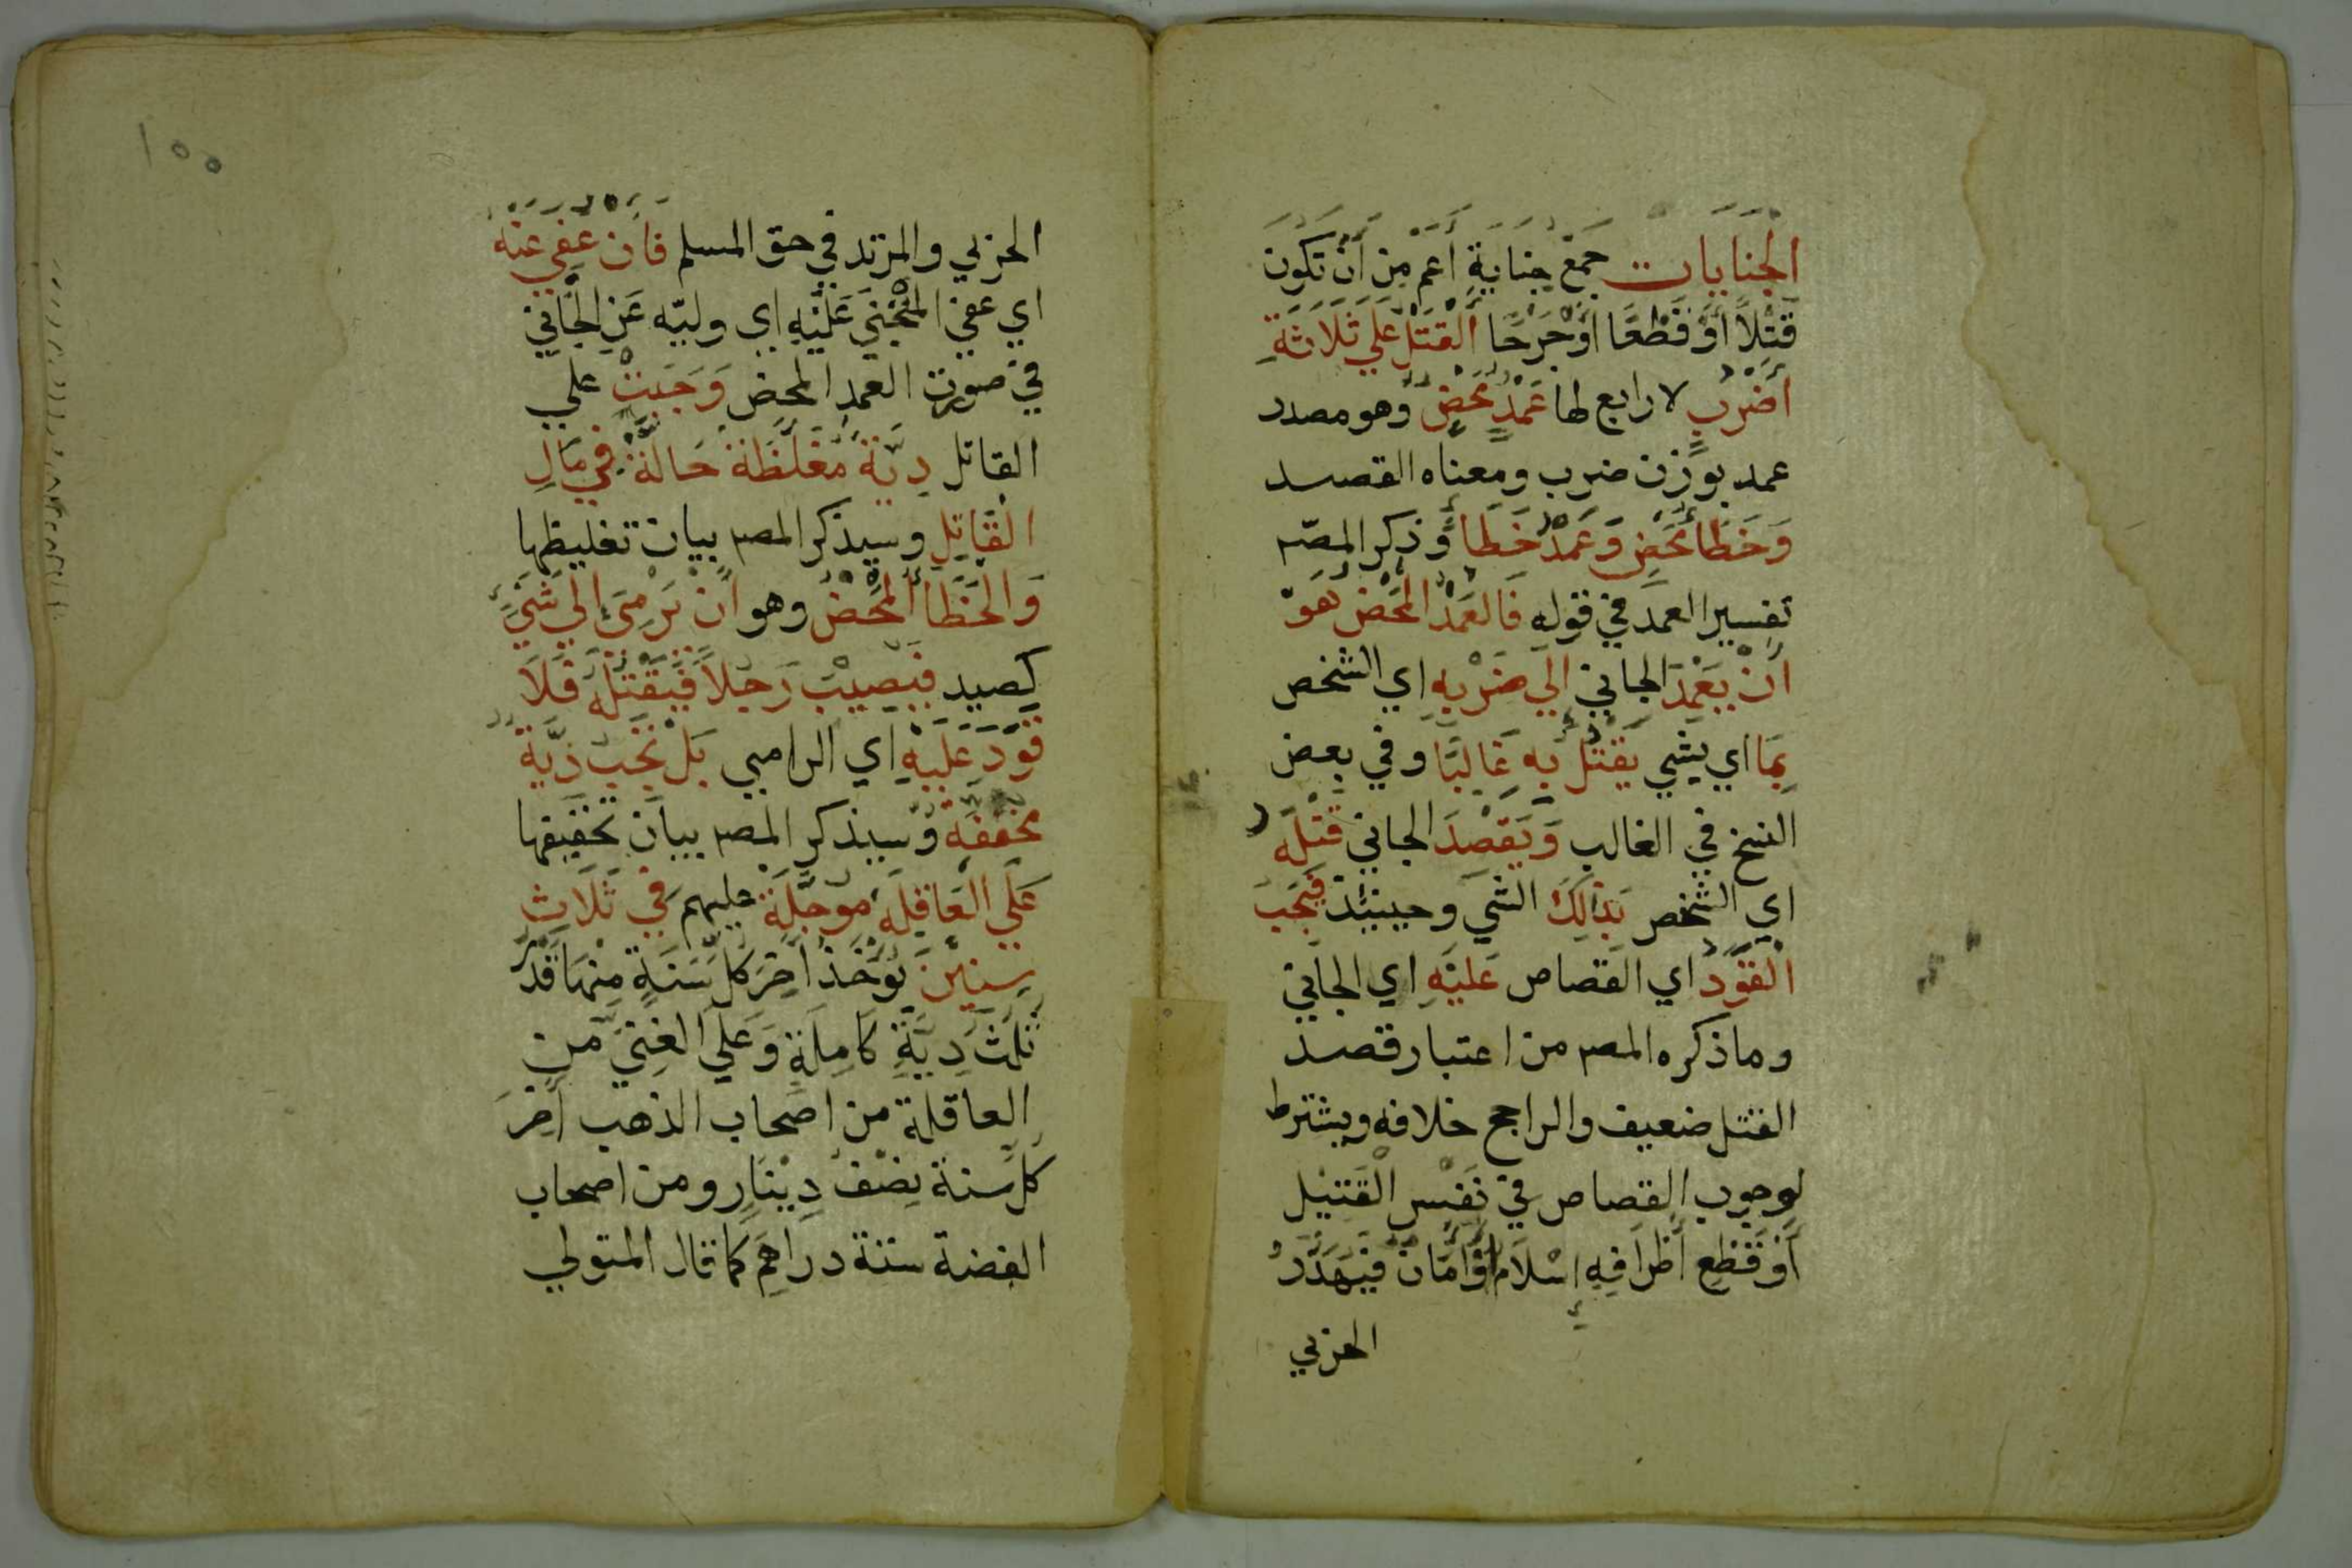 الجنايات جمع جناية اعم من أن تكون
قتلاً أو قطعًا اوجرحًا القتل علي ثلاثة
أضرب لا رابع لها عمد محض وهو مصدر
عمد بوزن ضرب ومعناه القصد
وخطأ محض وعمد خطأ وذكر المصـ
تفسير العمد في قوله فالعمد المحض هو
أن يعمد الجاني الي ضربه اي الشخص
بما اي بشي يقتل به غالبًا وفي بعض
النسخ في الغالب ويقصد الجاني قتله
اي الشخص بذالك الشي وحينئذ فيجب
القود اي القصاص عليه اي الجاني
وما ذكره المصـ من اعتبار قصد
القتل ضعيف والراجح خلافه ويشترط
لوجوب القصاص في نفس القتيل
أو قطع أطرافه إسلام أو أمان فيهدر
الحربي
١٥٥
الحربي والمرتد في حق المسلم فان عفي عنه
اي عفي المجني عليه اي وليه عن الجاني
في صورت العمد المحض وجبت علي
القاتل دية مغلظة حالة في مال
القاتل وسيذكر المصـ بيان تغليظها
والخطأ المحض وهو أن يرمي إلي شيء
كصيد فيصيب رجلاً فيقتله فلا
قود عليه اي الرامي بل تجب دية
مخففة وسيذكر المصـ بيان تخفيفها
علي العاقلة موجلة عليهم في ثلاث
سنين يوخذ اخر كل سنة منها قدر
ثلث دية كاملة وعلي الغني من
العاقلة من اصحاب الذهب أخر
كل سنة نصف دينار ومن اصحاب
الفضة ستة دراهم كما قال المتولي